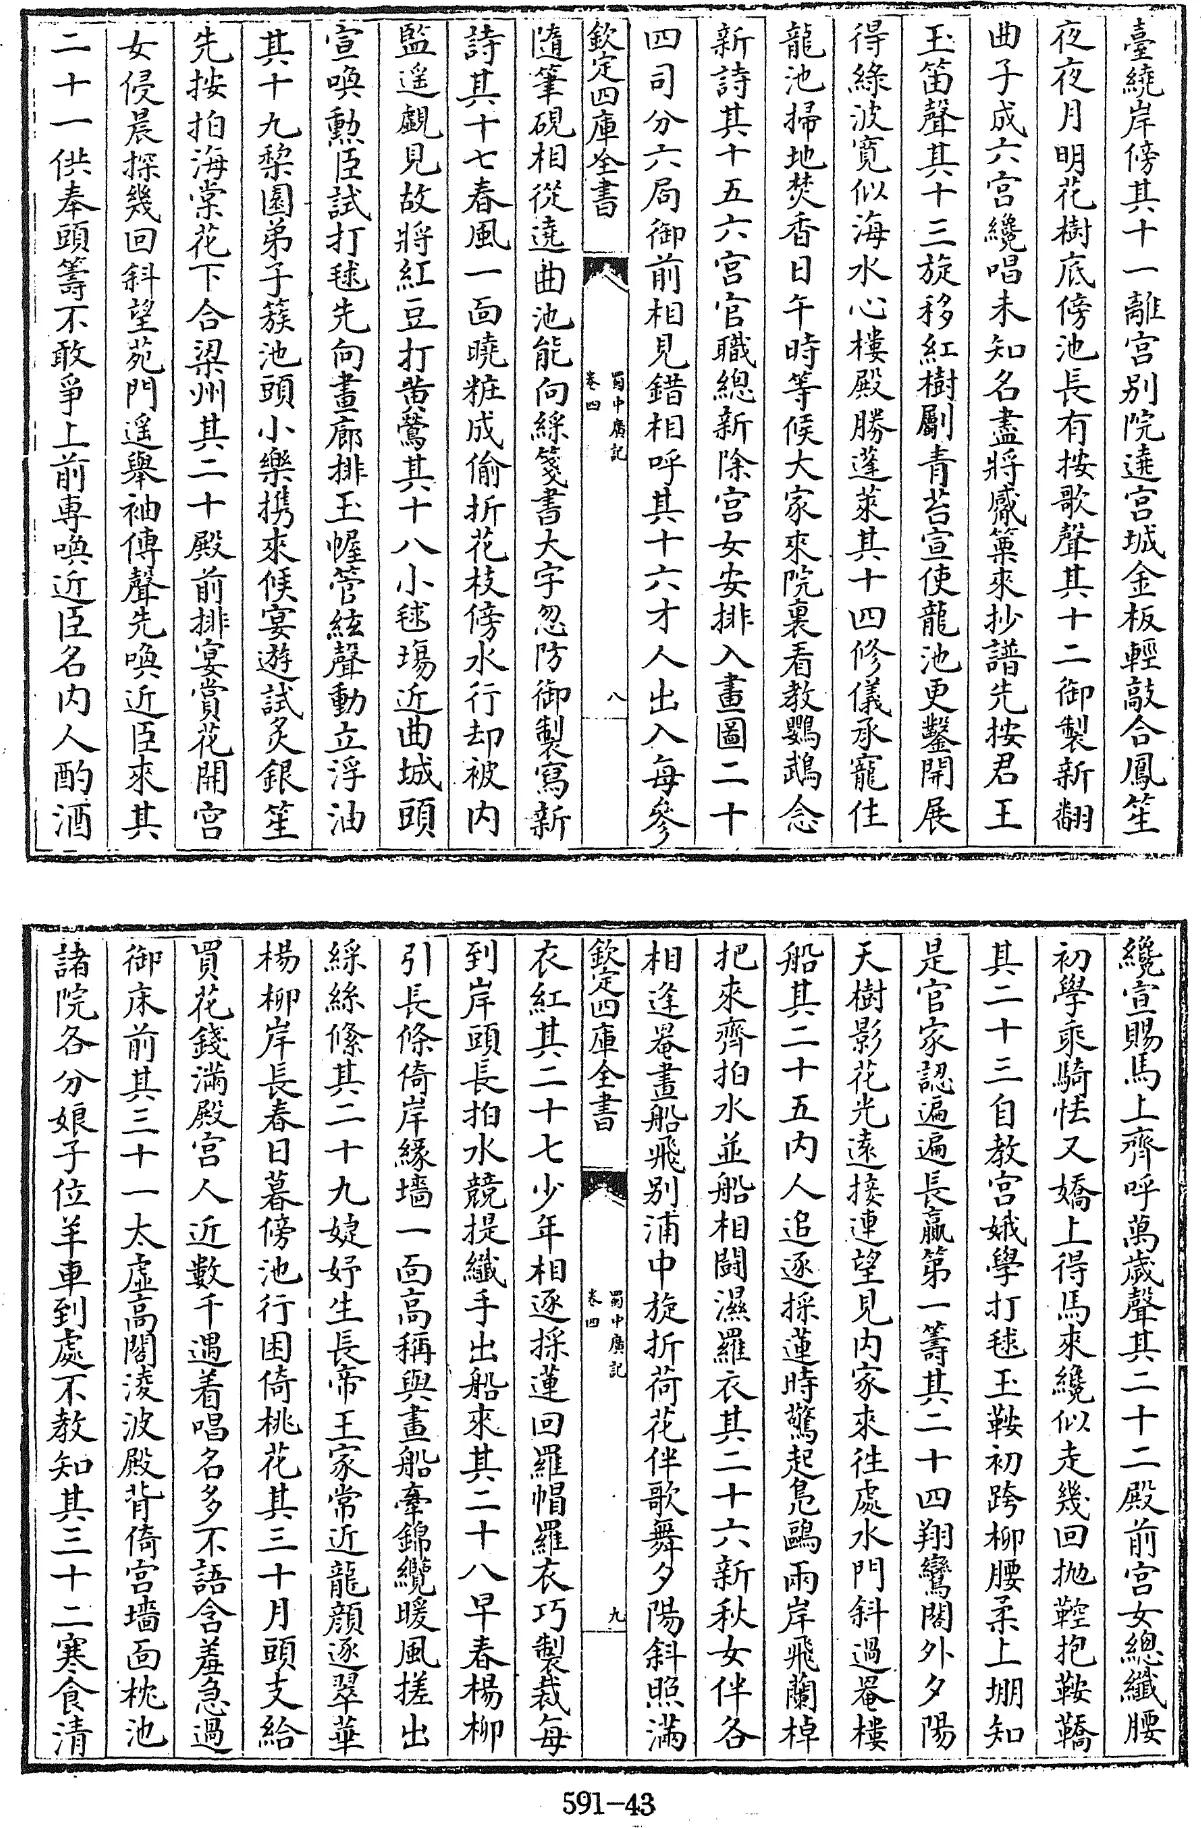 臺繞岸傍其十一離宮别院遶宮城金板輕敲合鳳笙
夜夜月明花樹底傍池長有按歌聲其十二御製新翻
曲子成六宮纔唱未知名盡將觱篥來抄譜先按君王
玉笛聲其十三旋移紅樹劚青苔宣使龍池更鑿開展
得綠波寛似海水心樓殿勝蓬萊其十四修儀承寵住
龍池掃地焚香日午時等候大家來院裏看教鸚鵡念
新詩其十五六宮官職總新除宮女安排入畫圖二十
四司分六局御前相見錯相呼其十六才人出入每參
欽定四庫全書
蜀中廣記
卷四
八
隨筆硯相從遶曲池能向綵箋書大字忽防御製寫新
詩其十七春風一面曉粧成偷折花枝傍水行却被内
監遥覷見故將紅豆打黄鶯其十八小毬塲近曲城頭
宣喚勲臣試打毬先向畫廊排玉幄管絃聲動立浮油
其十九棃園弟子簇池頭小樂携來候宴遊試炙銀笙
先按拍海棠花下合梁州其二十殿前排宴賞花開宮
女侵晨探幾回斜望苑門遥舉袖傳聲先喚近臣來其
二十一供奉頭籌不敢爭上前專喚近臣名内人酌酒
纔宣賜馬上齊呼萬歲聲其二十二殿前宮女總纖腰
初學乘騎怯又嬌上得馬來纔似走幾回抛鞚抱鞍鞽
其二十三自教宮娥學打毬玉鞍初跨柳腰柔上堋知
是官家認遍遍長贏第一籌其二十四翔鸞閣外夕陽
天樹影花光遠接連望見内家來往處水門斜過罨樓
船其二十五内人追逐採蓮時驚起鳬鷗兩岸飛蘭棹
把來齊拍水並船相鬬濕羅衣其二十六新秋女伴各
相逢罨畫船飛别浦中旋折荷花伴歌舞夕陽斜照滿
欽定四庫全書
蜀中廣記
卷四
九
衣紅其二十七少年相逐採蓮回羅帽羅衣巧製裁每
到岸頭長拍水競提纖手出船來其二十八早春楊柳
引長條倚岸緣墻一面高稱與畫船牽錦纜暖風搓出
綵絲絛其二十九婕妤生長帝王家常近龍顔逐翠華
楊柳岸長春日暮傍池行困倚桃花其三十月頭支給
買花錢滿殿宮人近數千遇着唱名多不語含羞急過
御床前其三十一太虚高閣淩波殿背倚宮墻面枕池
諸院各分娘子位羊車到處不教知其三十二寒食清
591-43